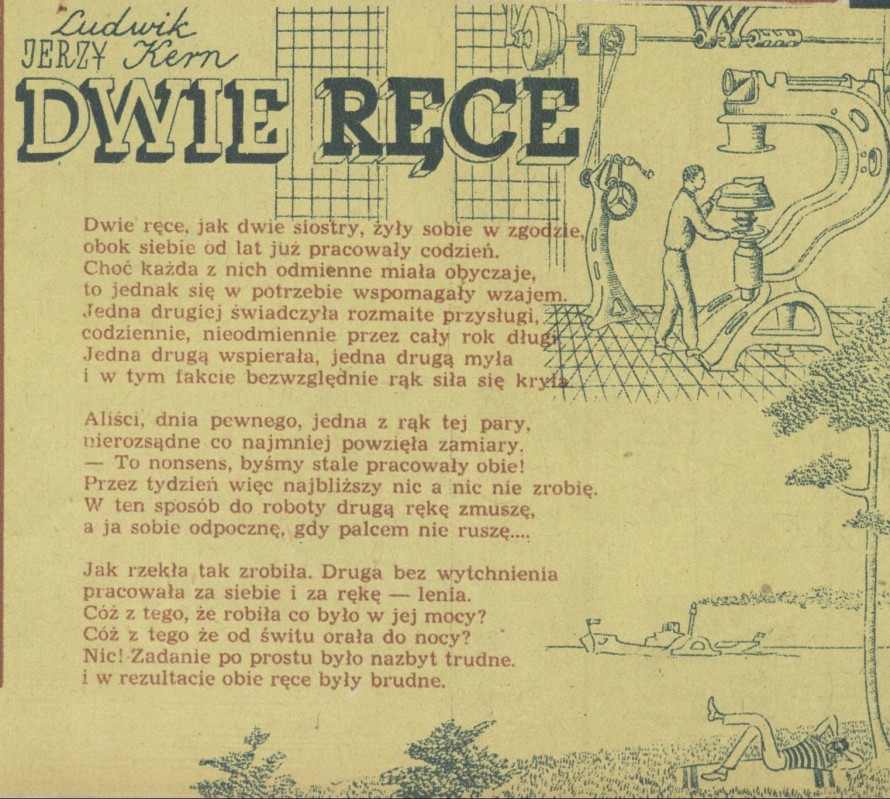 Ludwik
JERZY Kern
DWIE RĘCE
Dwie ręce, jak dwie siostry, żyły sobie w zgodzie,
obok siebie od lat już pracowały codzień.
Choć każda z nich odmienne miała obyczaje,
to jednak się w potrzebie wspomagały wzajem.
Jedna drugiej świadczyła rozmaite przysługi,
codziennie, nieodmiennie przez cały rok długi
Jedna drugą wspierała, jedna drugą myła
i w tym fakcie bezwzględnie rąk siła się kryła.
Aliści, dnia pewnego, jedna z rąk tej pary,
nierozsądne co najmniej powzięła zamiary.
— To nonsens, byśmy stale pracowały obie!
Przez tydzień więc najbliższy nic a nic nie zrobię.
W ten sposób do roboty drugą rękę zmuszę,
a ja sobie odpocznę, gdy palcem nie ruszę....
Jak rzekła tak zrobiła. Druga bez wytchnienia
pracowała za siebie i za rękę — lenia.
Cóż z tego, że robiła co było w jej mocy?
Cóż z tego że od świtu orała do nocy?
Nic! Zadanie po prostu było nazbyt trudne.
i w rezultacie obie ręce były brudne.